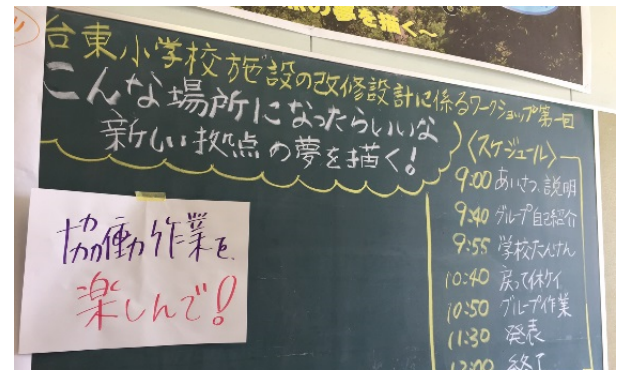 の夢を描く〜
台東小学校施設の改修設計に係るワークショップ第一回
こんな場所になったらいいな
新しい拠点の夢を描く!
協働作業を
楽しんで!
〈スケジュール〉
9:00 あいさつ、説明
9:40 グループ自己紹介
9:55 学校たんけん
10:40 戻って休ケイ
10:50 グループ作業
11:30 発表
12:00 終了